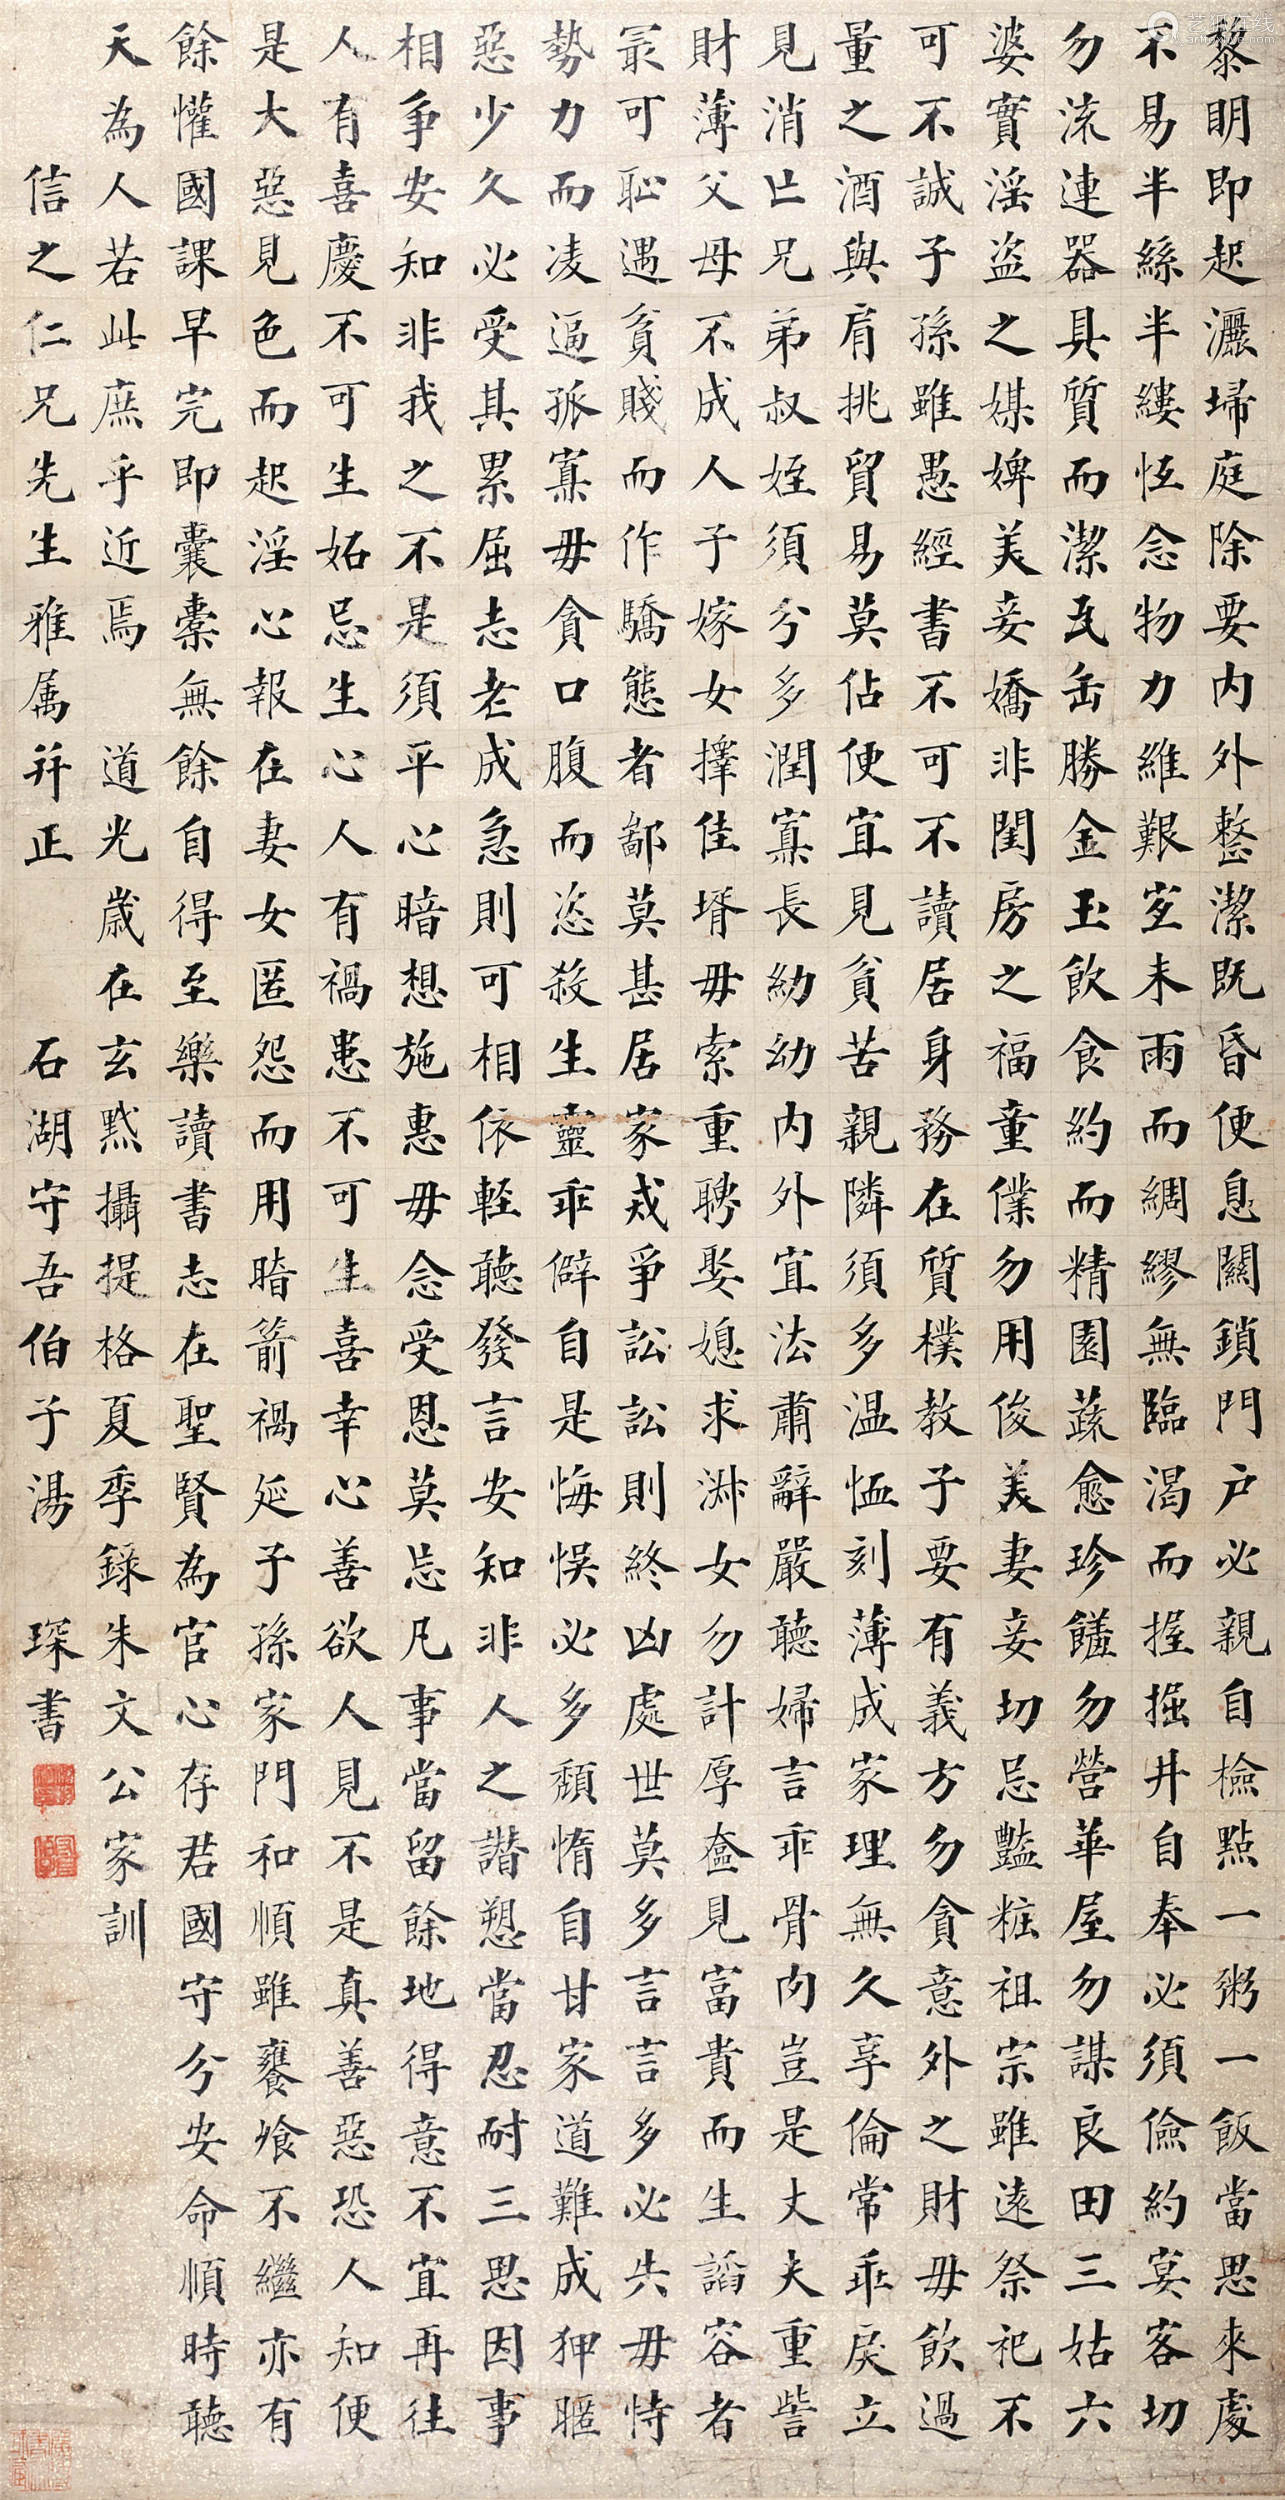 黎明即起灑埽庭除要内外整潔既昏便息關鎖門户必親自檢點一粥一飯當思來處
不易半絲半縷恆念物力維艱宜未雨而綢繆無臨渴而握掘井自奉必須儉約宴客切
勿流連器具質而潔瓦缶勝金玉飲食約而精園蔬愈珍饈勿營華屋勿謀良田三姑六
婆實淫盗之媒婢美妾嬌非閨房之福童僕勿用俊美妻妾切忌豔粧祖宗雖遠祭祀不
可不誠子孫雖愚經書不可不讀居身務在質樸教子要有義方勿貪意外之財毋飲過
量之酒與肩挑貿易莫佔便宜見貧苦親隣須多温恤刻薄成家理無久享倫常乖戾立
見消亡兄弟叔姪須分多潤寡長幼幼内外宜法肅辭嚴聽婦言乖骨肉豈是丈夫重訾
財薄父母不成人子嫁女擇佳壻毋索重聘娶媳求淑女勿計厚奩見富貴而生謟容者
最可恥遇貧賤而作驕態者鄙莫甚居家戒爭訟訟則終凶處世莫多言言多必失毋恃
勢力而凌逼孤寡毋貪口腹而恣殺生靈乖僻自是悔悮必多頽惰自甘家道難成狎暱
惡少久必受其累屈志老成急則可相依輕聽發言安知非人之譖愬當忍耐三思因事
相爭安知非我之不是須平心暗想施惠毋念受恩莫忘凡事當留餘地得意不宜再往
人有喜慶不可生妬忌生心人有禍患不可生喜幸心善欲人見不是真善惡恐人知便
是大惡見色而起淫心報在妻女匿怨而用暗箭禍延子孫家門和順雖饔飧不繼亦有
餘懽國課早完即囊橐無餘自得至樂讀書志在聖賢為官心存君國守分安命順時聽
天為人若此庶乎近焉 道光歲在玄黓攝提格夏季錄朱文公家訓
信之仁兄先生雅属并正 石湖守吾伯子湯 琛書
艺狐在线
artfoxlive.com